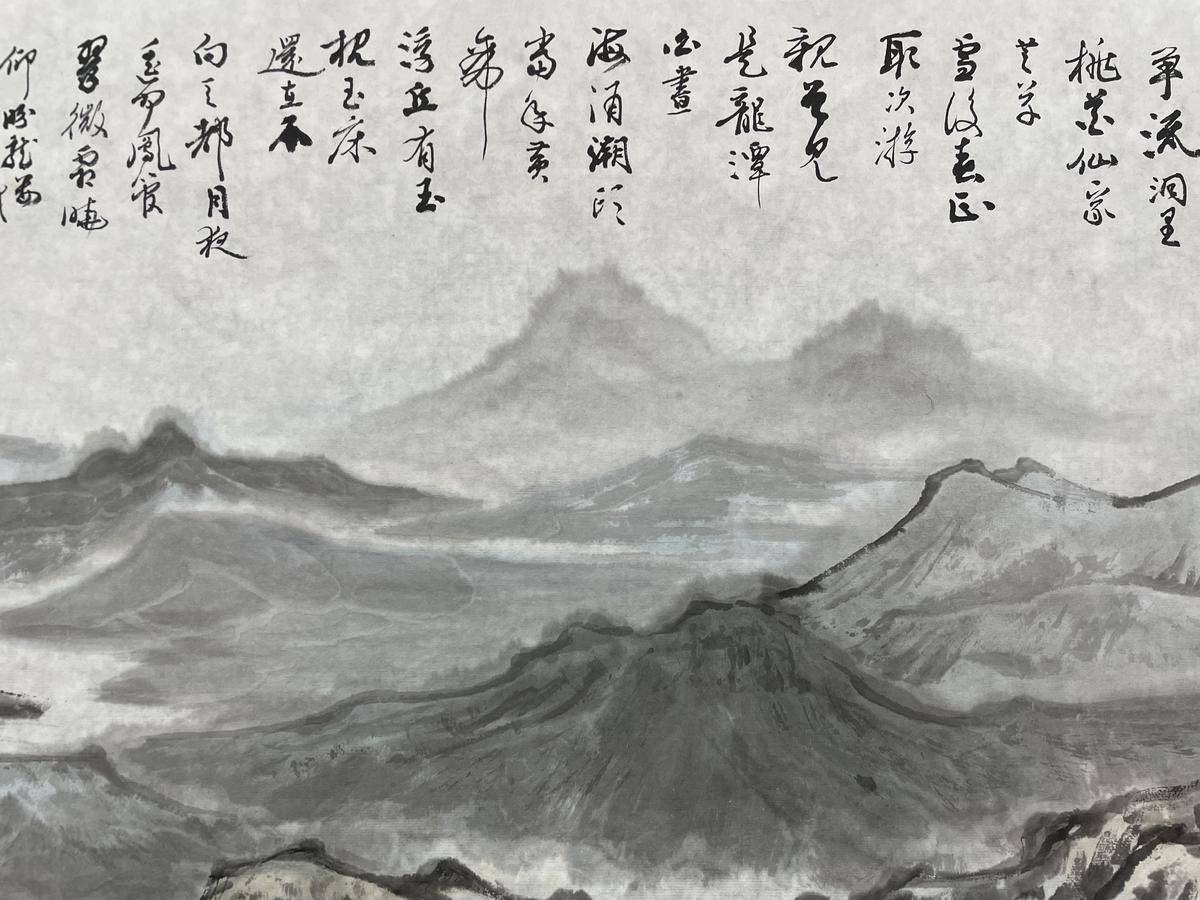 争流洞里
桃花仙家
芝草
雪後春正
取次游
親曾見
是龍潭
白晝
海涌潮頭
當年黄
帝
浮丘有玉
枕玉床
還在不
向天都月夜
遥聞鳳管
翠微霜曉
仰盼龍